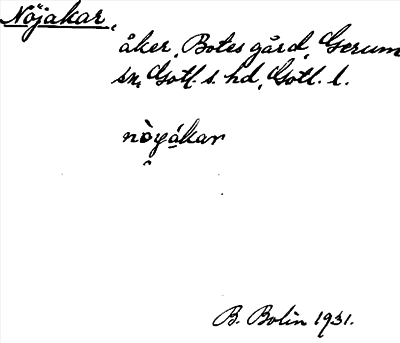 Nöjakar,
åker, Botes gård, Gerum
sn, Gotl. s. hd, Gotl. l.
nòyákar
B. Bolin 1931.